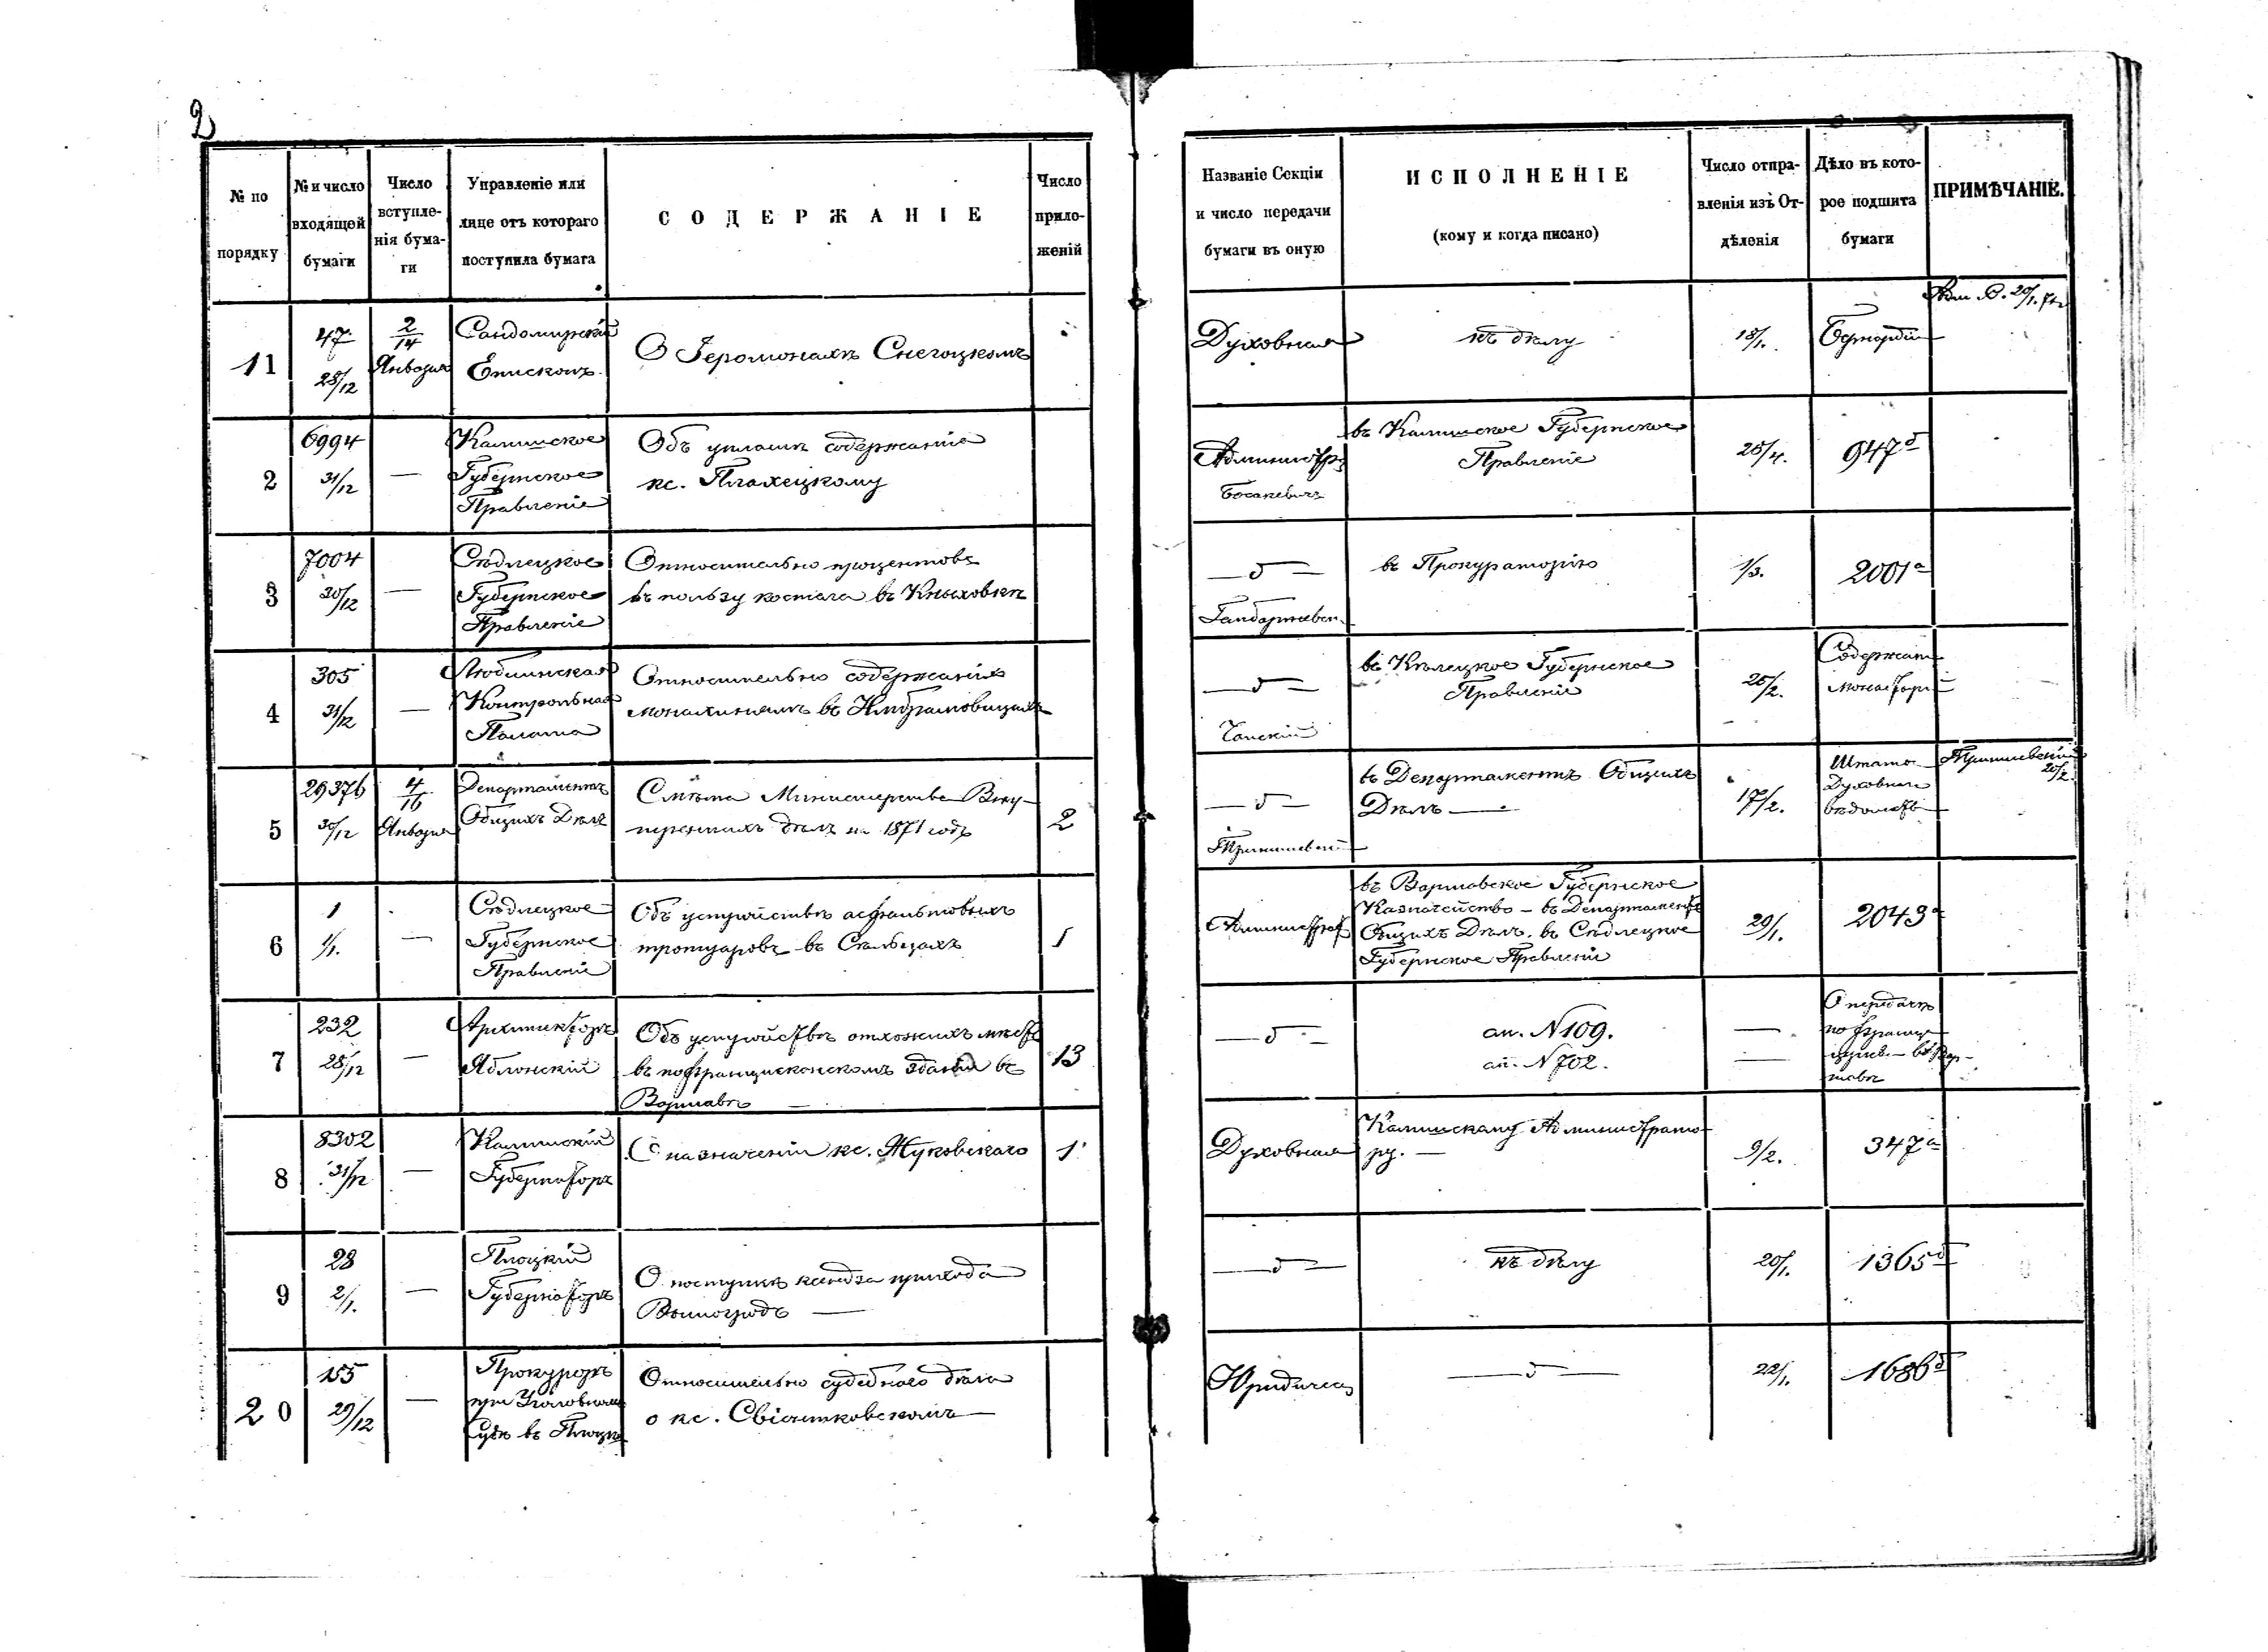 2
№ по порядку
№ и число входящей бумаги
Число вступле-нія бума-ги
Управленіе или лице отъ котораго поступила бумага
СОДЕРЖАНІЕ
Число прило-женій
Названіе Секціи и число передачи бумаги въ оную
ИСПОЛНЕНІЕ
(кому и когда писано)
Число отпра-вленія изъ От-дѣленія
Дѣло въ кото-рое подшита бумаги
ПРИМѢЧАНІЕ.
11
47
28/12
2/14
Января
Сандомирскій
Епископъ
О Іеромонахѣ Снегоцкомъ
Духовная
къ дѣлу
18/1.
20/1.
2
6994
31/12
—
Калишское
Губернское
Правленіе
Объ уплатѣ содержанія
кс. Плахецкому
въ Калишское Губернское
Правленіе
947б
3
7004
30/12
—
Сѣдлецкое
Губернское
Правленіе
Относительно процентовъ
въ пользу костела въ Кныховкѣ
— д —
въ Прокураторію
1/3.
2001а
4
305
31/12
—
Люблинская
Контрольная
Палата
Относительно содержанія
монахинямъ въ Имбрамовицахъ
— д —
въ Кѣлецкое Губернское
Правленіе
5
29376
30/12
4/16
Января
Департаментъ
Общихъ Дѣлъ
Смѣта Министерства Вну-
треннихъ дѣлъ на 1871 годъ
2
— д —
въ Департаментъ Общихъ
Дѣлъ —
17/2.
Духовнаго
6
1
1/1.
—
Сѣдлецкое
Губернское
Правленіе
Объ устройствѣ асфальтовыхъ
тротуаровъ въ Сѣдльцахъ
1
въ Варшавское Губернское
Казначейство – въ Департаментъ
Общихъ Дѣлъ. въ Сѣдлецкое
Губернское Правленіе
29/1.
2043
7
232
28/12
—
Архитекторъ
Яблонскій
Объ устройствѣ отхожихъ мѣстъ
въ пофранцисканскомъ зданіи въ
Варшавѣ —
13
— д —
ст. N 109.
ст. N 702.
—
—
О передачѣ
8
8302
31/12
—
Калишскій
Губернаторъ
О назначеніи кс. Жуковскаго
1
Духовная
Калишскому Администрато-
ру. —
9/2.
347а
9
28
2/1.
—
Плоцкій
Губернаторъ
О поступкѣ ксендза прихода
Вышогродъ —
— д —
къ дѣлу
20/1.
1365б
20
155
29/12
—
Прокуроръ
при Уголовномъ
Судѣ въ Плоцкѣ
Относительно судебнаго дѣла
о кс. Свіонтковскомъ
— д —
22/1.
1686б